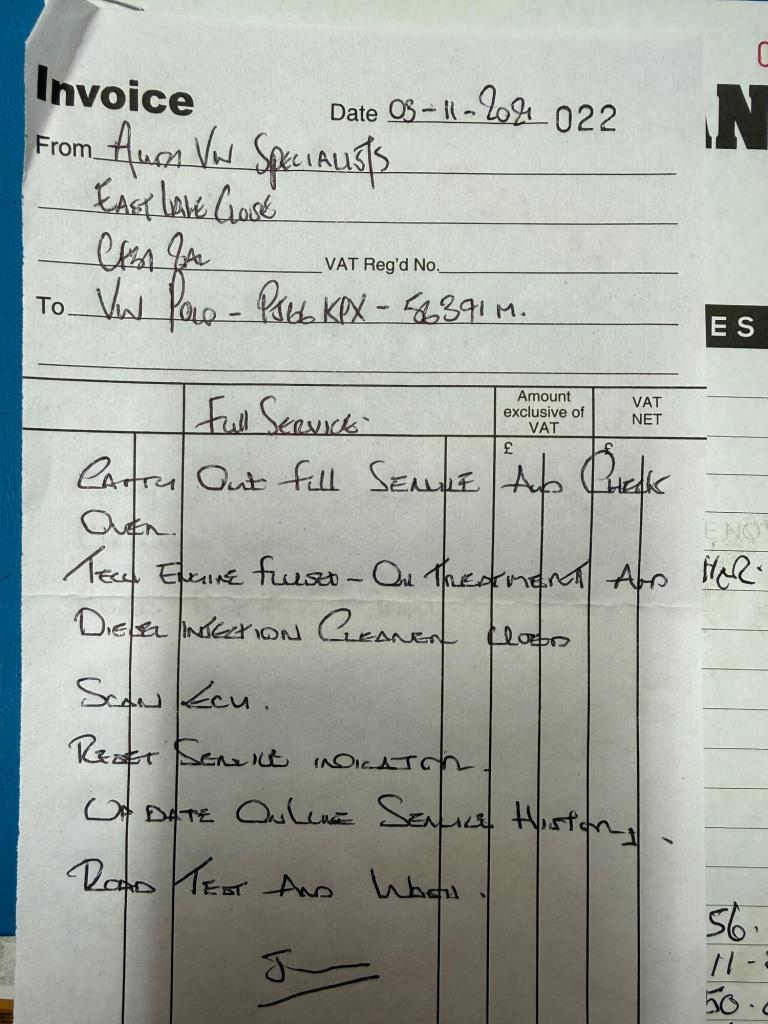 Invoice
Date 03-11-2021 022
From Audi VW Specialists
East Lake Close
VAT Reg'd No.
To VW Polo - PJ66 KPX - 56391 M.
Full Service.
Amount
exclusive of
VAT
VAT
NET
£ £
Carry Out full Service And Check
Over.
Tech Engine flused - Oil Treatment And
Diesel Injection Cleaner Used
Scan Ecu.
Reset Service indicator.
Update Online Service History.
Road Test And Wash.
AN
ES
56.
11-
50.